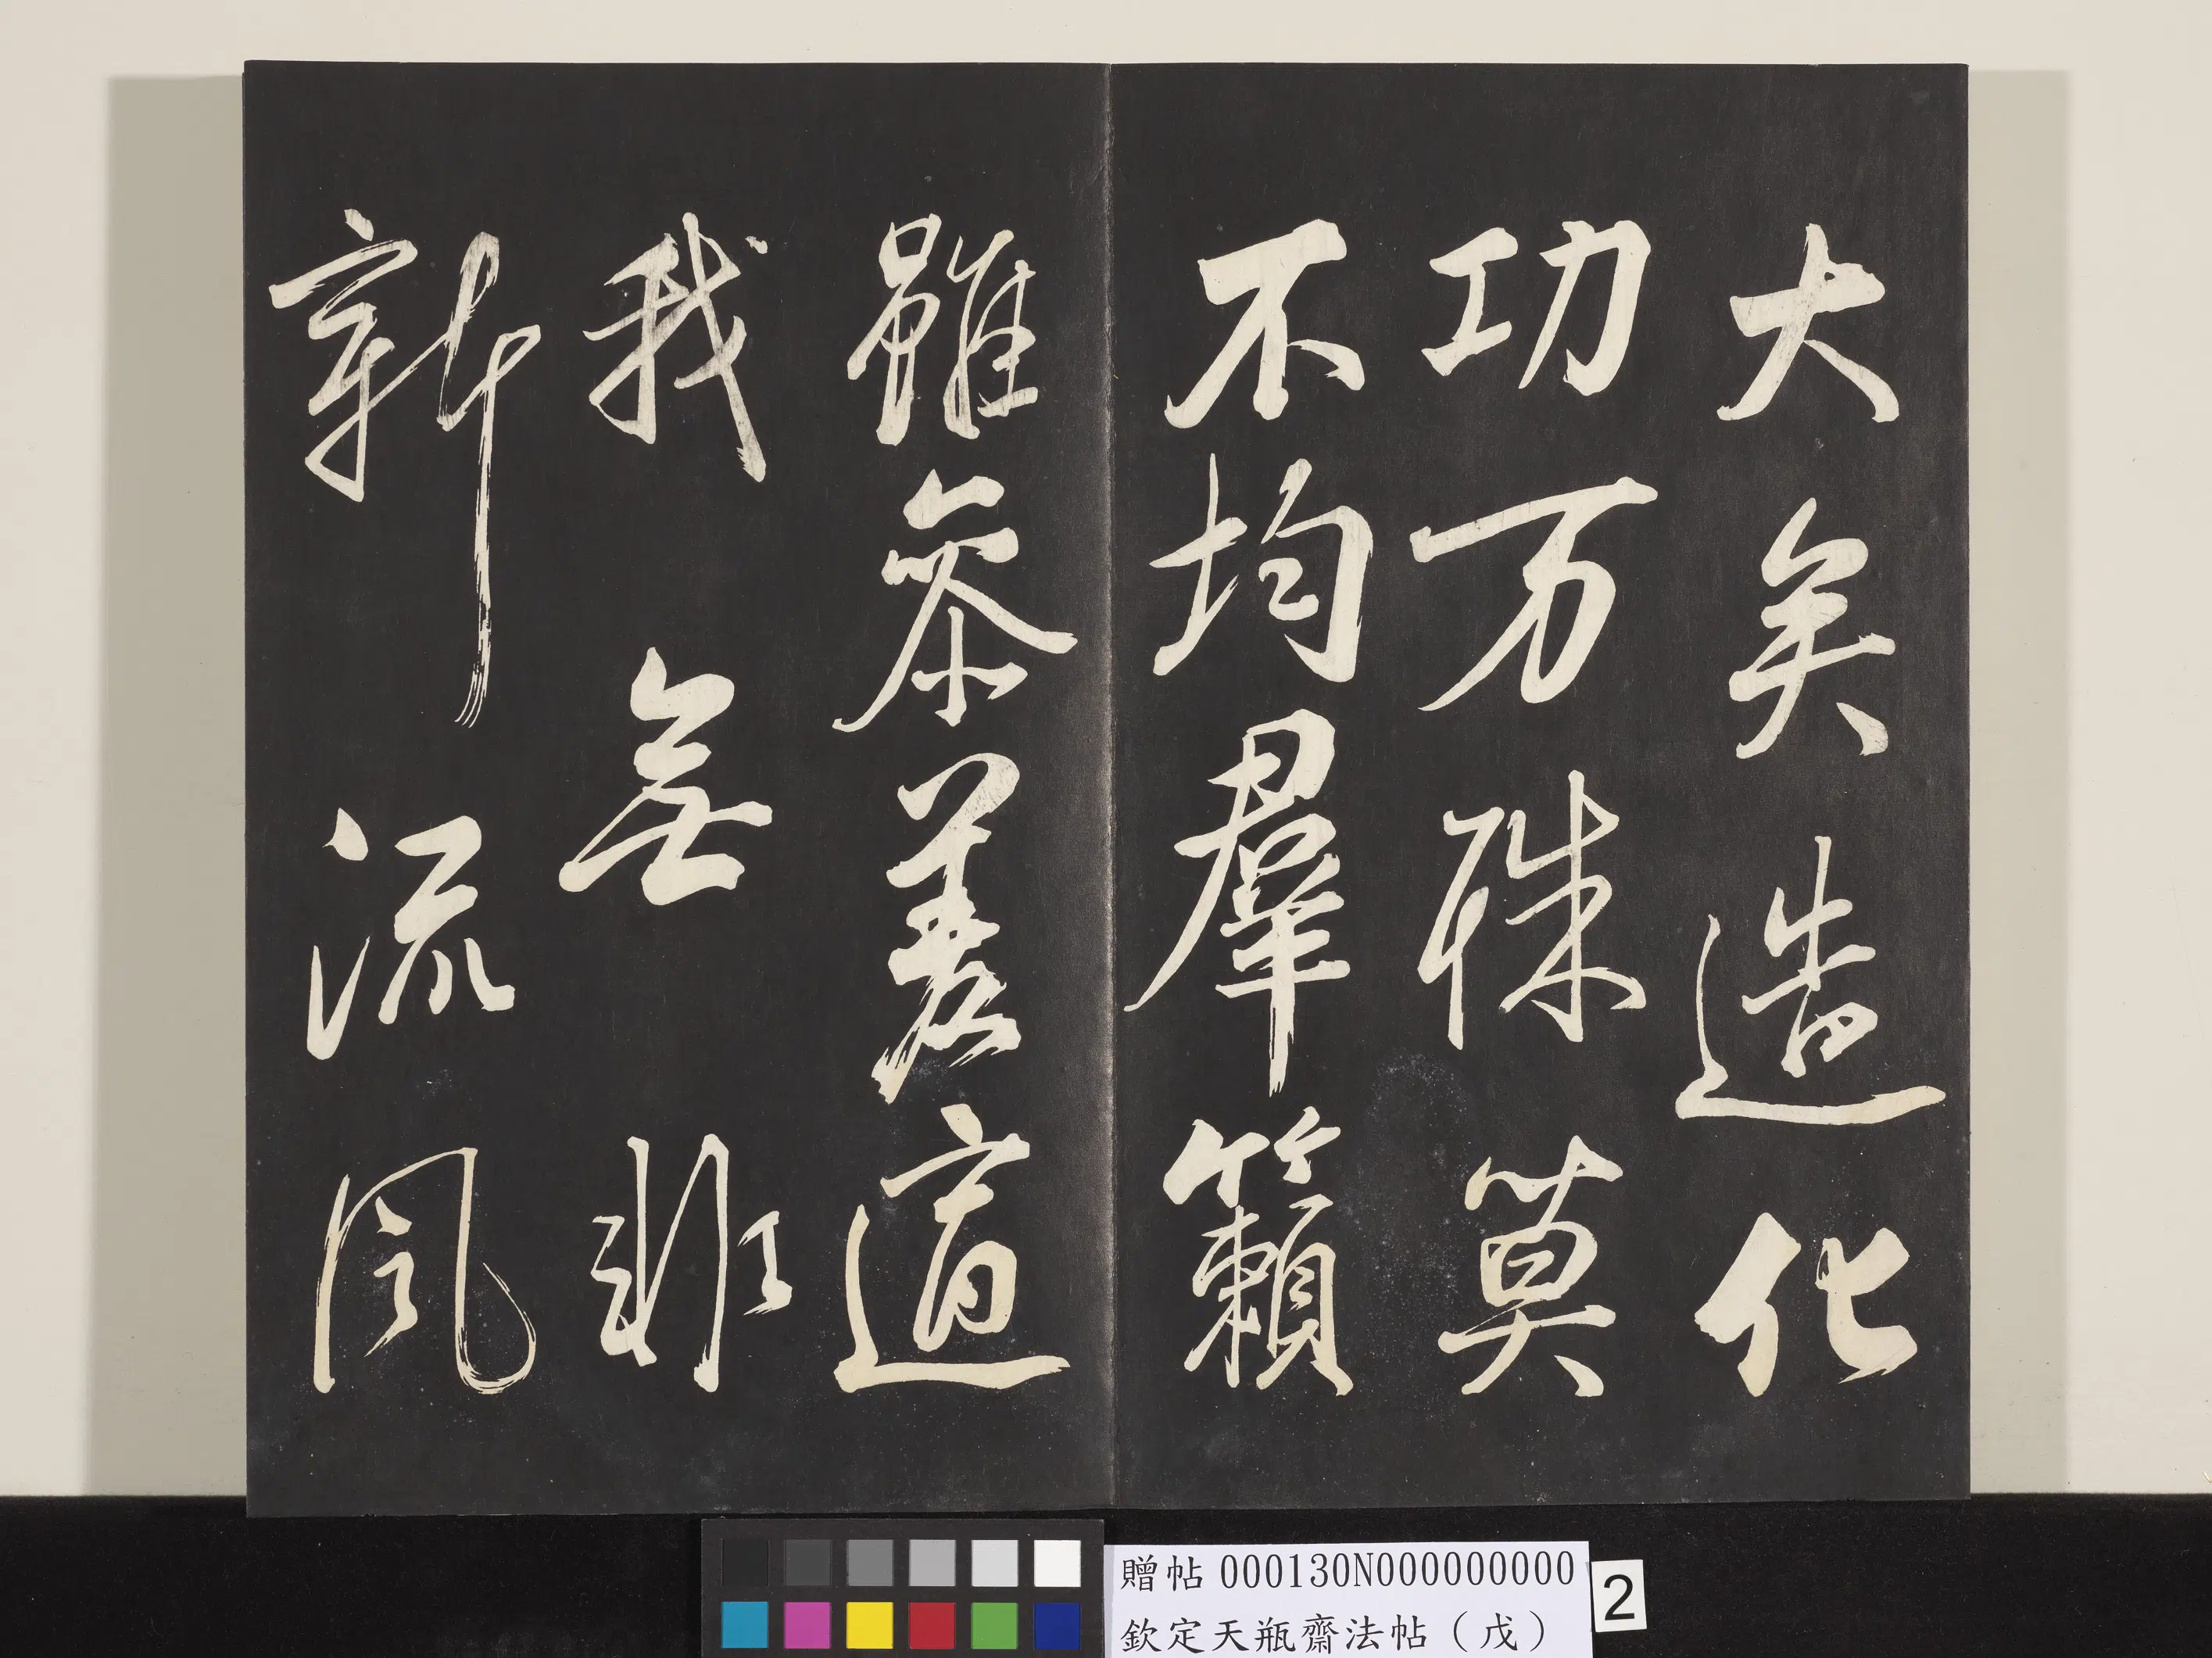 大矣造化
功万殊莫
不均羣籟
雖叅差適
我無非
新流風
贈帖 000130N000000000
欽定天瓶齋法帖（戊）
2